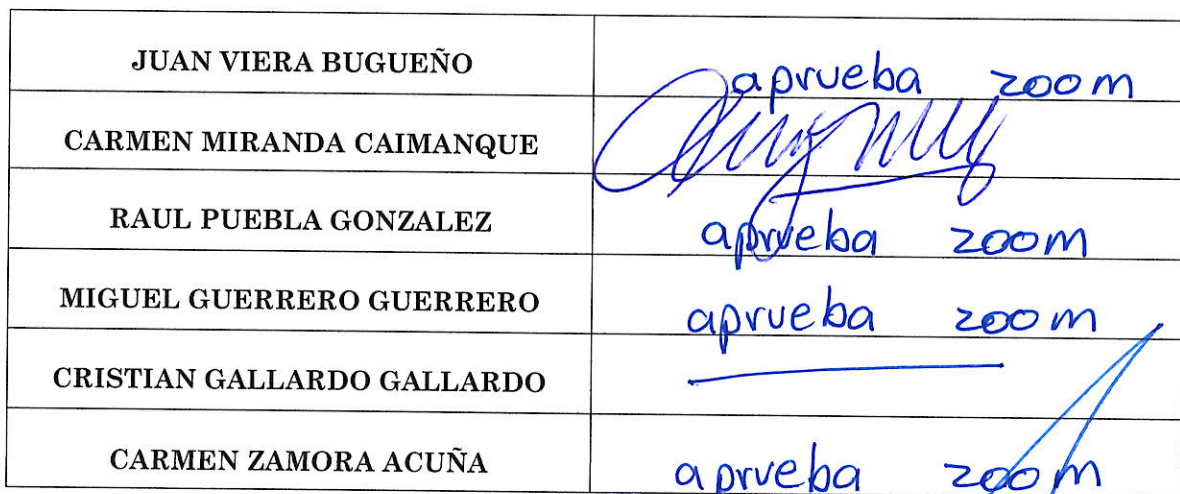 JUAN VIERA BUGUEÑO aprueba zoom
CARMEN MIRANDA CAIMANQUE
RAUL PUEBLA GONZALEZ aprueba zoom
MIGUEL GUERRERO GUERRERO aprueba zoom
CRISTIAN GALLARDO GALLARDO
CARMEN ZAMORA ACUÑA aprueba zoom